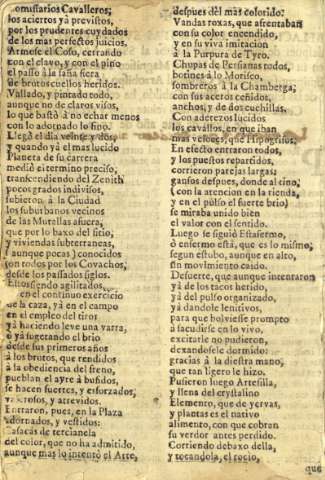 Comissarios Cavalleros;
los acierros yà previstos,
por los prudentes cuydados
de los mas perfectos juicios.
Armòse el Coso, cerrando
con el clavo, y con el pino
el passo à la saña fiera
de brutos cuellos heridos.
Vallado, y pintado todo,
aunque no de claros visos,
lo que bastò à no echar menos
con lo adornado lo fino.
Llegò el dia veinte y seis,
y quando yà el mas lucido
Planeta de su carrera
mediò el termino preciso,
transcendiendo del Zenith
pocos grados indivisos,
subieron, à la Ciudad
los suburbanos vecinos
de las Murallas afuera,
que por lo baxo del sitio,
y viviendas subterraneas,
(aunque pocas) conocidos
son todos por los Covachos,
desde los passados siglos.
Estos siendo agilitados
en el continuo exercicio
de la caza, yà en el campo
en el empleo del tiro,
yà haciendo leve una varra,
ò yà sugetando el brio
desde sus primeros años
à los brutos, que rendidos
à la obediencia del freno,
pueblan el ayre à bufidos,
se hacen fuertes, y esforzados,
valerosos, y atrevidos.
Entraron, pues, en la Plaza
adornados, y vestidos:
Casacas de tercianela
del color, que no ha admitido,
aunque mas lo intentò el Arte,
despues del mas colorido:
Vandas roxas, que afrentaban
con su color encendido,
y en su viva imitacion
à la Purpura de Tyro,
Chupas de Persianas todos,
botines à lo Morisco,
sombreros à la Chamberga;
con sus aceros ceñidos,
anchos, y de dos cuchillas.
Con aderezos lucidos
los cavallos, en que iban
mas veloces, que Hipogrifos.
En efecto entraron todos,
y los puestos repartidos,
corrieron parejas largas;
gansos despues, donde al tino,
con la atencion en la rienda,
y en el pulso el fuerte brio
se miraba unido bien
el valor con el sentido.
Luego se siguiò Estafermo,
ò enfermo està, que es lo mismo;
segun estubo, aunque en alto,
sin movimiento caido.
Desuerte, que aunque intentaron
yà de los tacos herido,
yà del pulso organizado,
yà dandole lenitivos,
para que bolviesse prompto
à sacudirse en lo vivo,
excitarle no pudieron,
dexandosele dormido:
gracias à la diestra mano,
que tan ligero le hizo.
Pusieron luego Artesilla,
y llena del crystalino
Elemento, que de yervas,
y plantas es el nativo
alimento, con que cobran
su verdor antes perdido.
Corriendo debaxo della,
y tocandola, el rocio,
que